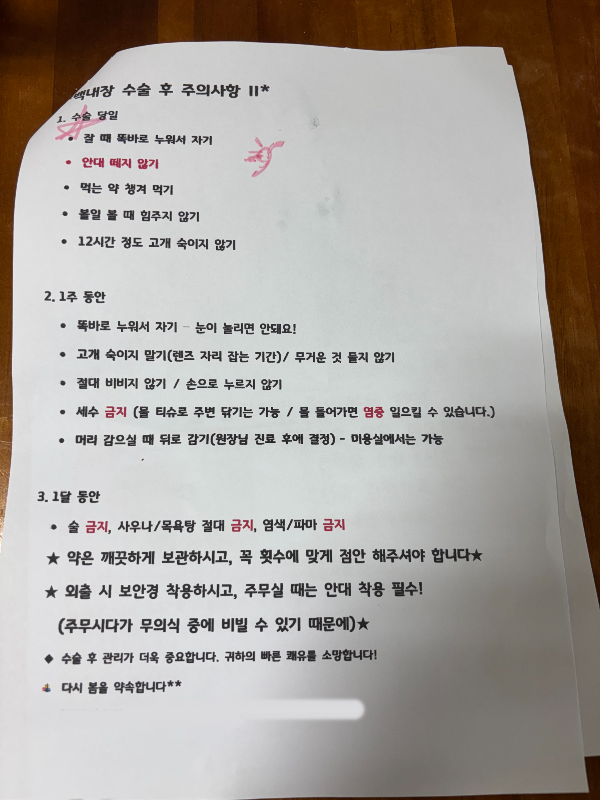 백내장 수술 후 주의사항 II*
1. 수술 당일
• 잘 때 똑바로 누워서 자기
• 안대 떼지 않기
• 먹는 약 챙겨 먹기
• 볼일 볼 때 힘주지 않기
• 12시간 정도 고개 숙이지 않기
2. 1주 동안
• 똑바로 누워서 자기 – 눈이 눌리면 안돼요!
• 고개 숙이지 말기(렌즈 자리 잡는 기간)/ 무거운 것 들지 않기
• 절대 비비지 않기 / 손으로 누르지 않기
• 세수 금지 (물 티슈로 주변 닦기는 가능 / 물 들어가면 염증 일으킬 수 있습니다.)
• 머리 감으실 때 뒤로 감기(원장님 진료 후에 결정) - 미용실에서는 가능
3. 1달 동안
• 술 금지, 사우나/목욕탕 절대 금지, 염색/파마 금지
★ 약은 깨끗하게 보관하시고, 꼭 횟수에 맞게 점안 해주셔야 합니다★
★ 외출 시 보안경 착용하시고, 주무실 때는 안대 착용 필수!
(주무시다가 무의식 중에 비빌 수 있기 때문에)★
◆ 수술 후 관리가 더욱 중요합니다. 귀하의 빠른 쾌유를 소망합니다!
다시 봄을 약속합니다**